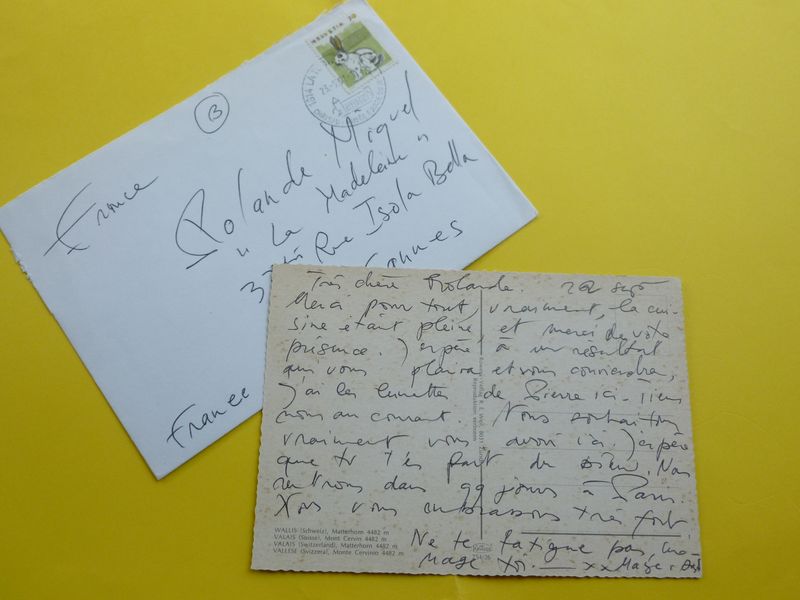 HELVETIA 70
B
France
Rolande Miguel
"La Madeleine"
Rue Isola Bella
Cannes
France
Très chère Rolande. 22 sept
Merci pour tout, vraiment, la cui-
sine était pleine, et merci de votre
présence. J'espère à un résultat
qui vous plaira et vous conviendra,
j'ai les lunettes de Pierre ici - tiens
nous au courant. Nous souhaitons
vraiment vous avoir ici. J'espère
que tu
rentrons dans jours à Paris.
Nous vous embrassons très fort.
Ne te fatigue pas,
nage toi. — xx
WALLIS (Schweiz), Matterhorn 4482 m
VALAIS (Suisse), Mont Cervin 4482 m
VALAIS (Switzerland), Matterhorn 4482 m
VALLESE (Svizzera), Monte Cervinio 4482 m